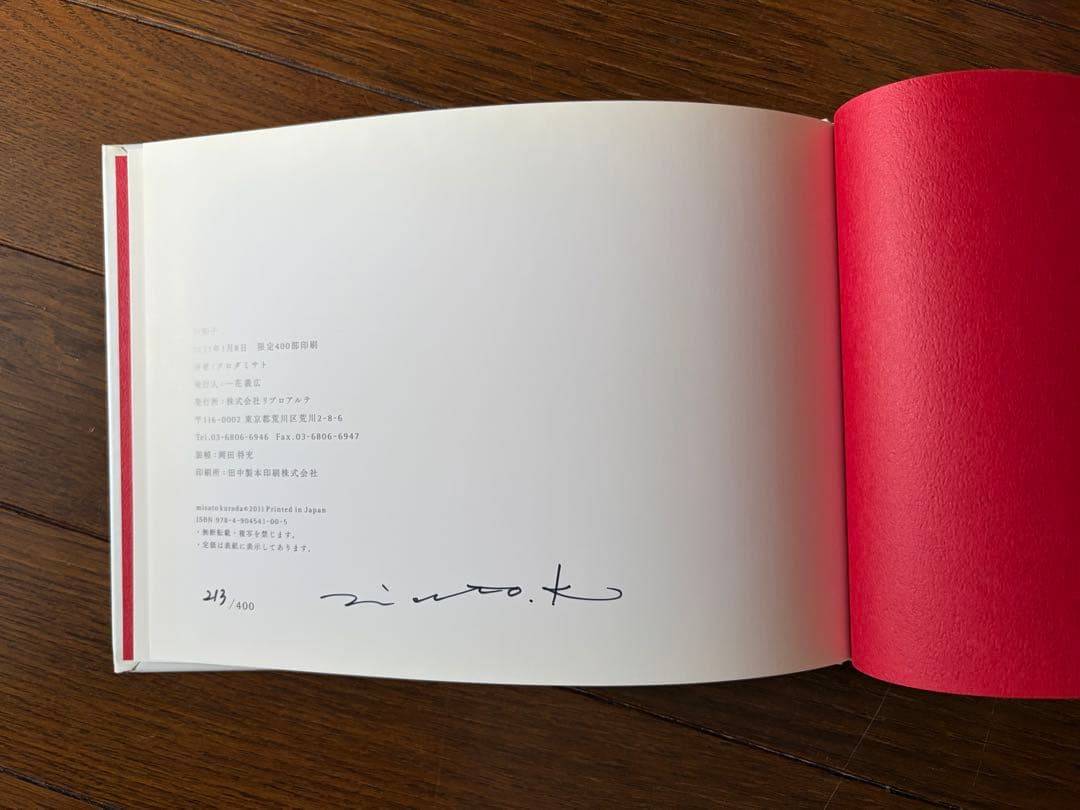 年1月8日 限定400部印刷
著者：クロダミサト
発行人：一花義広
発行所：株式会社リブロアルテ
〒116-0002 東京都荒川区荒川2-8-6
Tel.03-6806-6946 Fax.03-6806-6947
装幀：岡田将充
印刷所：田中製本印刷株式会社
misato kuroda©2011 Printed in Japan
ISBN 978-4-904541-00-5
・無断転載・複写を禁じます。
・定価は表紙に表示してあります。
213/400
misato.k